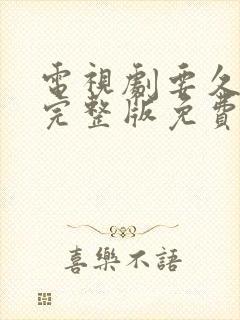 電視劇要久
完整版免費
喜樂不語